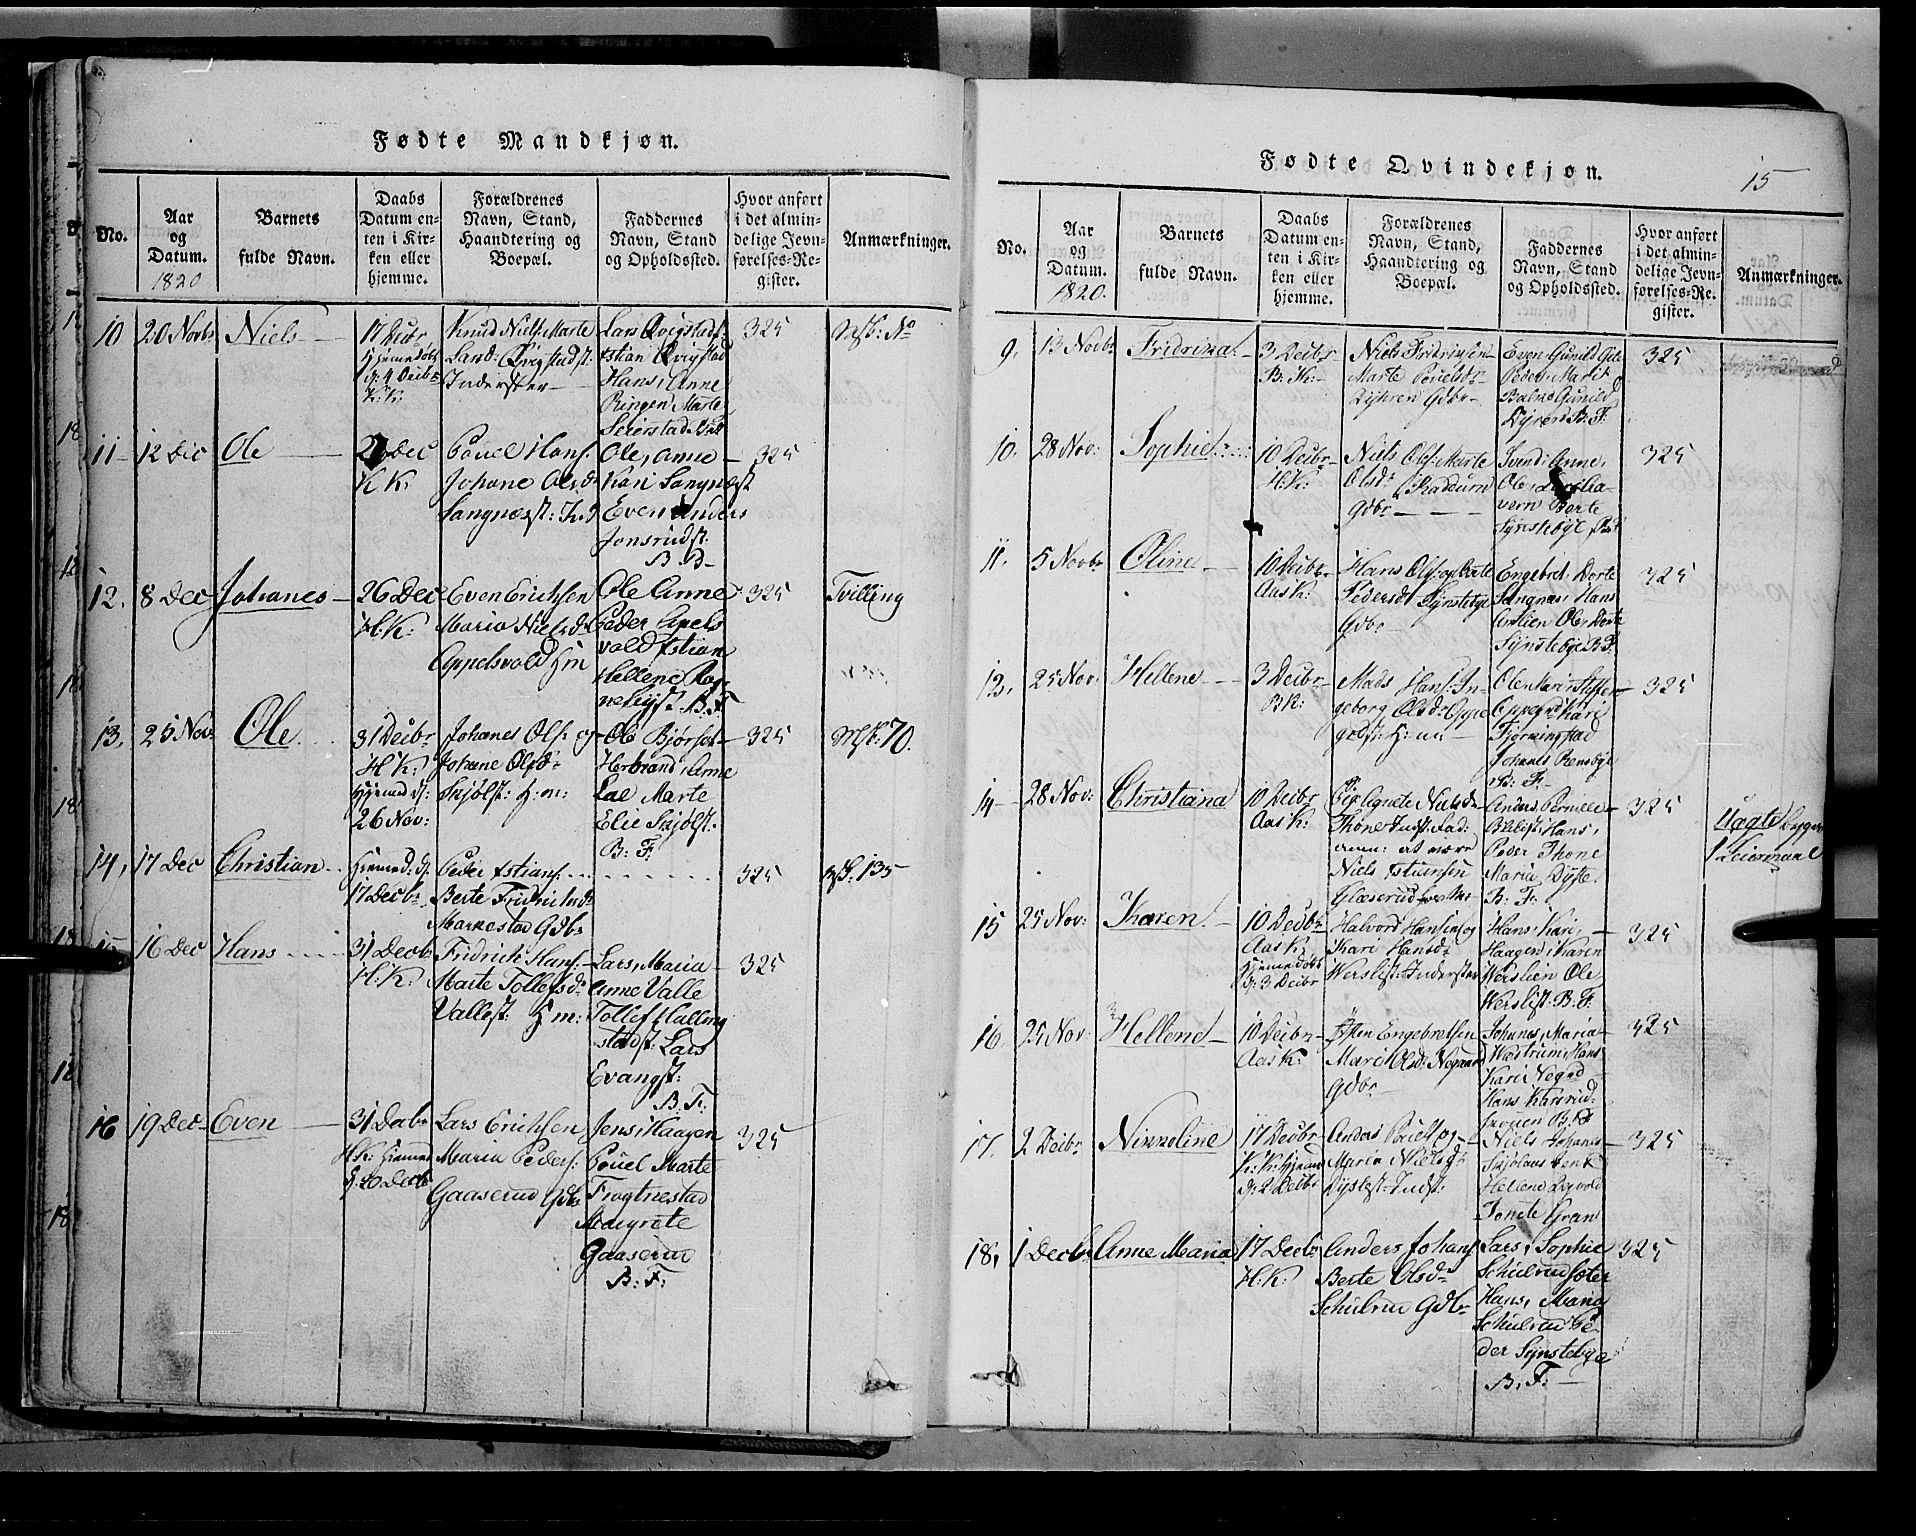 Fødte Mandkjøn.
No.
Aar
og
Datum.
1820
Barnets
fulde Navn.
Daabs
Datum en-
ten i Kir-
ken eller
hjemme.
Forældrenes
Navn, Stand,
Haandtering og
Boepæl.
Faddernes
Navn, Stand
og Opholdssted.
Hvor anført
i det almin-
delige Jevn-
førelses-Re-
gister.
Anmærkninger.
10
20 Novbr
Niels
17 Decbr
K: K:
Knud Niels: Marte
Larsd: Qvigstadst:
Inderster
Lars Qvigstad
stian Qvigstad
Hans, Anne
Ringen Marte
Seierstad
325
No
11
12 Dec
Ole
Dec
K K:
Pouel Hans:
Johane Olsd
Sangnæsst:
Ole, Anne
Kari Sangnæsst
Even Anders
Jonsrudst:
B B
325
12.
8 Dec
Johanes
26 Dec
H: K:
Even Erichsen
Maria Nielsd
Appelsvold Hm
Ole Anne
Peder Apels
vold stian
Hellene Rog
neliest: B: F
325
Tvilling
13.
25 Nov
Ole
31 Decbr
H K:
Hjemed:
26 Nov:
Johanes Ols: og
Johane Olsd:
Skjølst: H: m:
Ole Bjørset
Herbrand, Anne
Lae Marte
Elie Skjølst:
B: F:
325
70.
14,
17 Dec
Christian
Hjemed: d:
17 Decbr
Peder stians:
Berte Fridrichsd
Markestad Gdbr
325
135
15
16 Dec
Hans
31 Decbr
H: K:
Fridrich Hans:
Marte Tollefsd:
Vallest: H m:
Lars, Maria
Anne Valle
Tollef Halling
stadst: Lars
Evangst:
B: F:
325
16
19 Dec
Even
31 Decbr
H K: Hjemed
d: 20 Decbr
Lars Erichsen
Maria Peders:
Gaaserud Gdbr
Jens, Haagen
Pouel Marte
Frøgtnestad
Margrete
Gaaserud
B: F:
325
Fødte Qvindekjøn.
15
No.
Aar
og
Datum.
1820.
Barnets
fulde Navn.
Daabs
Datum en-
ten i Kir-
ken eller
hjemme.
Forældrenes
Navn, Stand,
Haandtering og
Boepæl.
Faddernes
Navn, Stand
og Opholdssted.
Hvor anført
i det almin-
delige Jevn-
førelses-Re-
gister.
Anmærkninger.
9.
13 Novbr
Fridrina
3 Decbr
B: K:
Niels Fridrichsen
Marte Pouelsdr
Gdbr
Even Gunild
Peder, Mari
Balke Gunild
B: F:
325
10.
28 Nov:
Sophie
10 Decbr
H: K:
Niels Ols: Marte
Olsdr
Gdbr
Svend, Anne,
Ole,
vern Berte
Synstebye
325
11.
5 Novbr
Oline
10 Decbr
Aas K:
Hans Ols: og Berte
Pedersd: Synstebye
Gdbr
Engebret, Dorte
Sangnæs, Hans
Ole, Dorte
Synstebye B: F:
325
12.
25 Nov:
Hellene
3 Decbr
B K:
Mads Hans: In-
geborg Olsd:
H: m
Ole Mari Steffen
Kari
Johanes
B: F:
325
14
28 Nov:
Christiana
10 Decbr
Aas K:
Pige Agnete Nielsd
Thone Indst: Fad:
at være
Niels
Anders, Pernille
Hans,
Peder Thone
Maria Dyste
B: F:
325
Uægte
Leiermaal
15
25 Nov:
Karen
10 Decbr
Aas K:
Hjemedøbt
d: 3 Decbr
Halvord Hansen og
Kari Hansdr
Werslist: Inderster
Hans, Kari,
Haagen, Karen
Werslien Ole
Werslist: B: F:
325
16.
25 Nov:
Hellene
10 Decbr
Aas K:
Engebretsen
Mari Olsd:
Gdbr
Johanes, Maria
Hans
Kari
Hans
B: F
325
17.
2 Decbr
Nixoline
17 Decbr
K: K: Hjemed
d: 2 Decbr
Anders Pouels og
Maria Nielsd
Dystest: Indst:
Niels Johans
Hellene
Tonete Gran
325
18,
1 Decbr
Anne Maria
17 Decbr
H: K:
Anders Johans:
Berte Olsd
Schulrud Gdbr
Lars, Sophie
Schulrud Peter
Hans, Maria
Schulrud Pe-
der Synstebye
B: F:
325